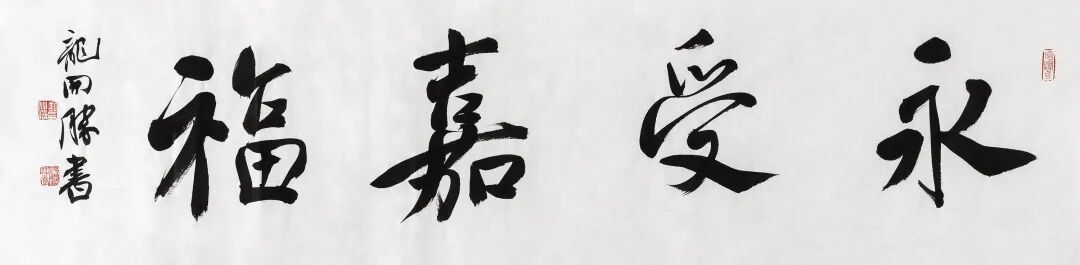 永受嘉福
龍開勝書